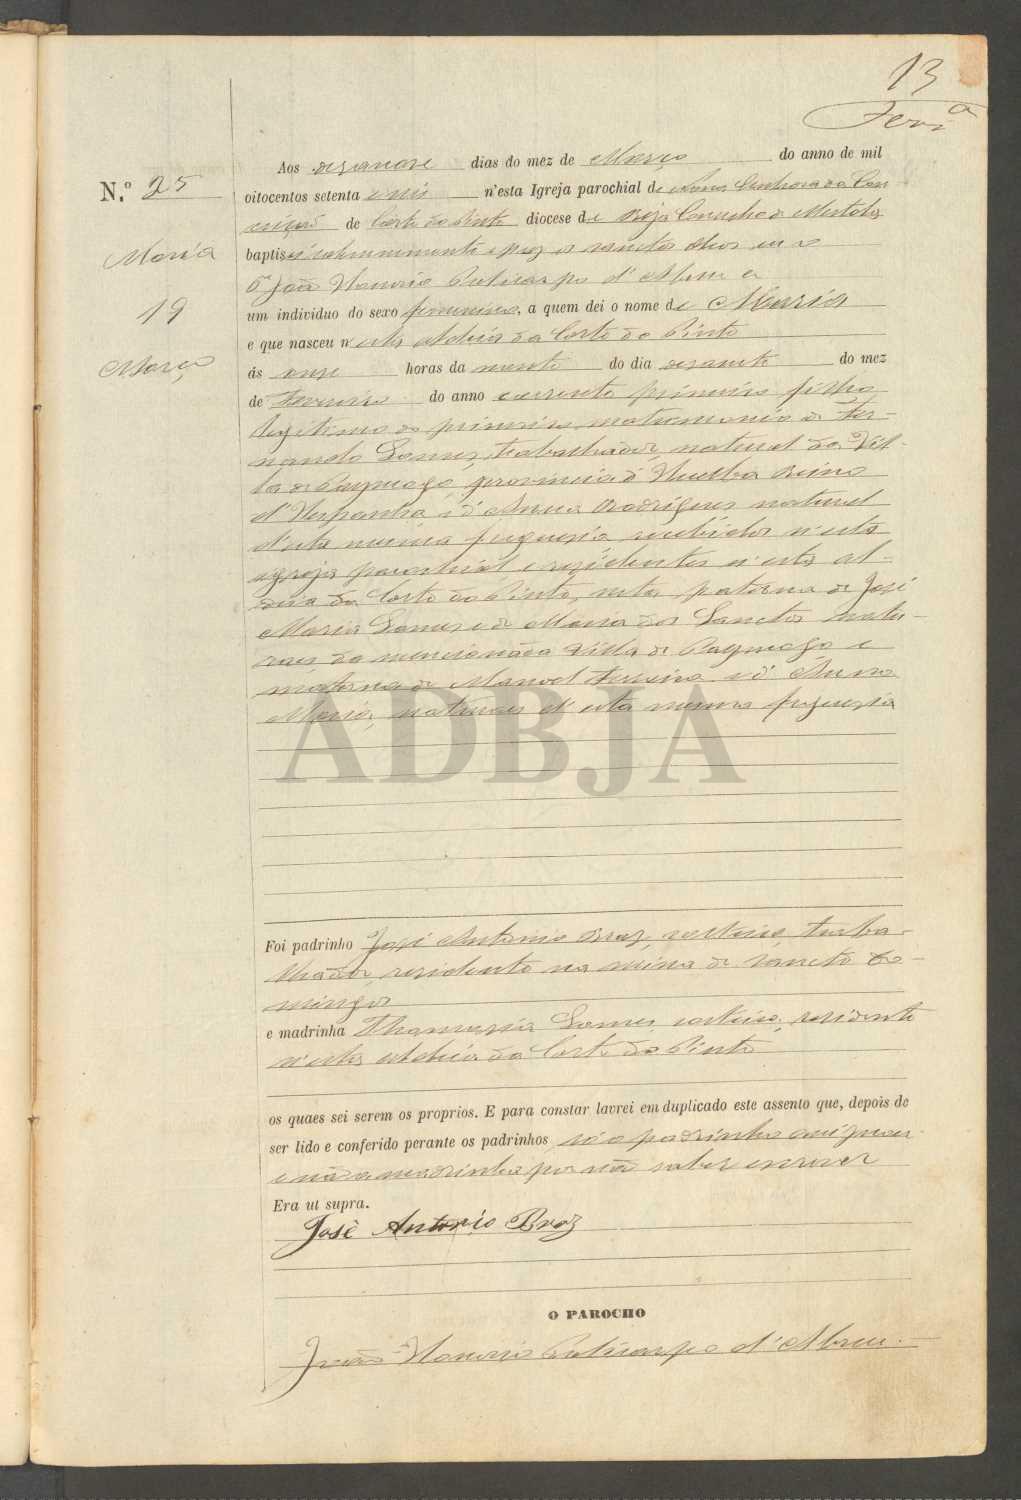 13
Ferr.ª
N.º 25
Maria
19
Março
Aos desanove dias do mez de Março do anno de mil
oitocentos setenta e seis n'esta Igreja parochial de Nossa Senhora da Con-
ceição de Corte do Pinto diocese de Beja Concelho de Mertola
baptisei solemnemente e puz os sanctos oleos eu o
P.e João Honorio Policarpo d'Abreu a
um individuo do sexo femenino, a quem dei o nome de Maria
e que nasceu n'esta Aldeia da Corte do Pinto
ás onze horas da noute do dia desasete do mez
de Fevereiro do anno corrente primeira filha
legitima do primeiro matrimonio de Fer-
nando Gomes, trabalhador, natural da Vil-
la de Paymogo, provincia d'Huelba Reino
d'Hespanha, e d'Anna Rodrigues natural
d'esta mesma freguesia recebidos n'esta
igreja parochial e residentes n'esta al-
deia da Corte do Pinto, neta paterna de José
Maria Gomes e de Maria dos Sanctos natu-
raes da mencionada Villa de Paymogo e
materna de Manoel Ferreira e d'Anna
Maria, naturaes d'esta mesma freguesia
ADBJA
Foi padrinho José Antonio Braz, solteiro, traba-
lhador, residente na mina de Sancto Do-
mingos
e madrinha Gomes, solteira, residente
n'esta Aldeia da Corte do Pinto
os quaes sei serem os proprios. E para constar lavrei em duplicado este assento que, depois de
ser lido e conferido perante os padrinhos só o padrinho assignou
e não a madrinha por não saber escrever
Era ut supra.
José Antonio Braz
O PAROCHO
João Honorio Policarpo d'Abreu.